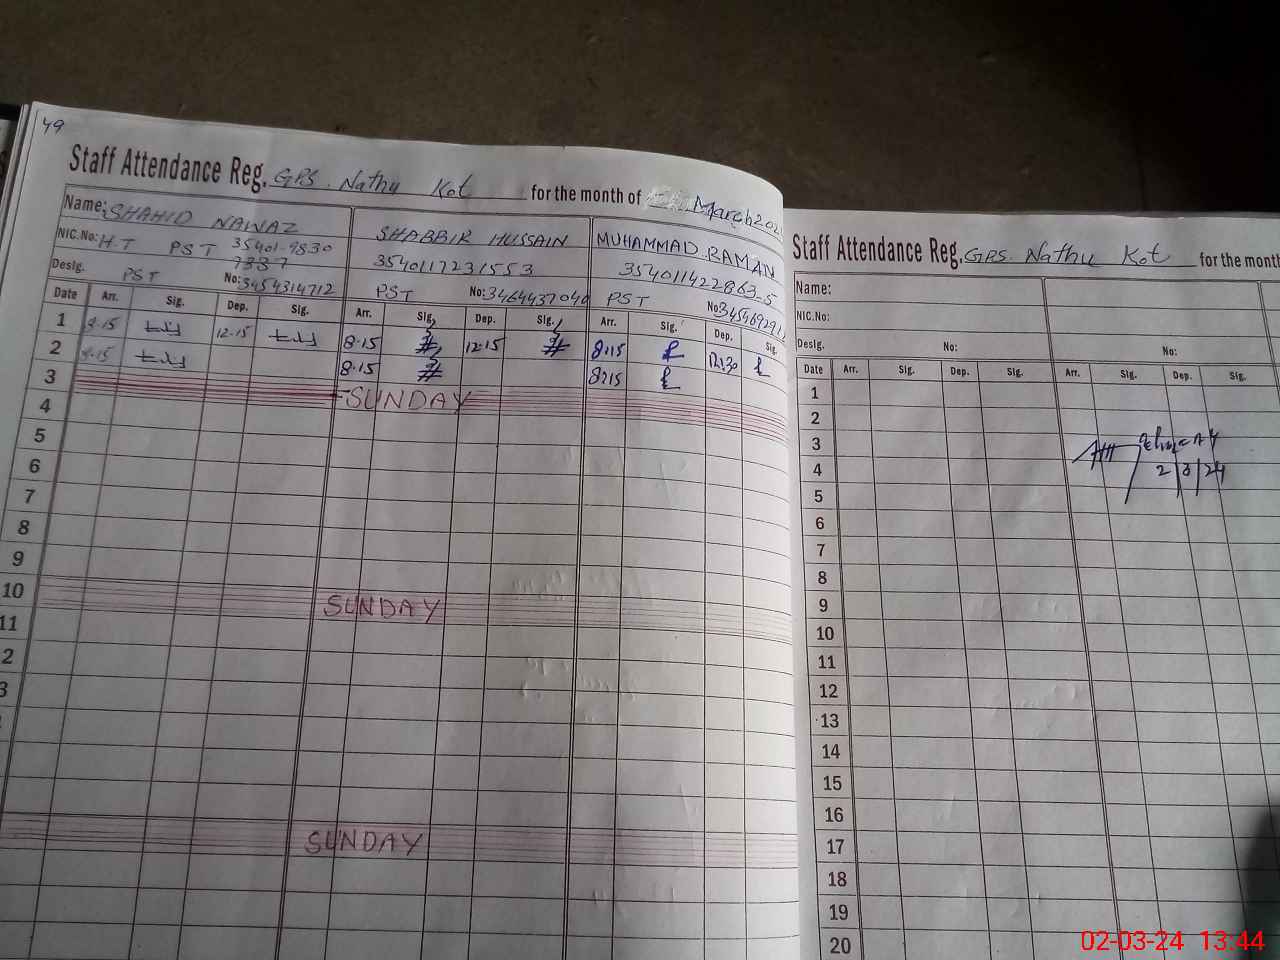 49
Staff Attendance Reg. GPS. Nathu Kot for the month of March 202
Name: SHAHID NAWAZ SHABBIR HUSSAIN MUHAMMAD RAMAN
NIC.No: H.T PST 35401-9830 3540117231553 3540114228635
7337
Desig. PST No: 3454314712 PST No: 3464437040 PST No
Date Arr. Sig. Dep. Sig. Arr. Sig. Dep. Sig. Arr. Sig. Dep. Sig.
1 8.15 12.15 8.15 12.15 8.15 12.30
2 8.15 8.15 8.15
3 SUNDAY
4
5
6
7
8
9
10 SUNDAY
11
2
3
SUNDAY
Staff Attendance Reg. GPS. Nathu Kot for the month
Name:
NIC.No:
Desig. No: No:
Date Arr. Sig. Dep. Sig. Arr. Sig. Dep. Sig.
1
2
3
4 2/3/24
5
6
7
8
9
10
11
12
13
14
15
16
17
18
19
20
02-03-24 13:44